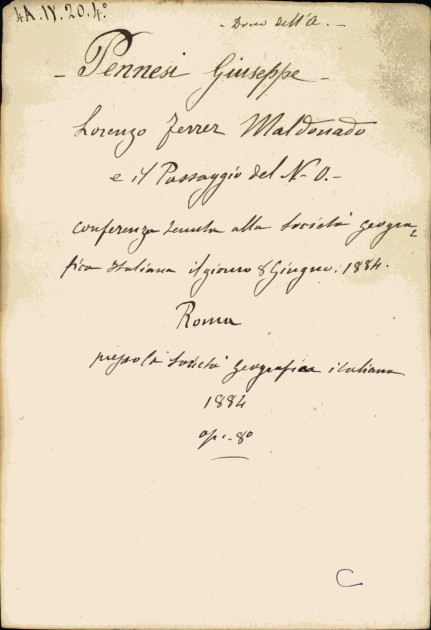 4A.IV.20.4º
- Dono dell'A. -
- Pennesi Giuseppe -
Lorenzo Ferrer Maldonado
e il Passaggio del N-O.-
conferenza tenuta alla Società geogra-
fica Italiana il giorno 8 Giugno. 1884.
Roma
presso la Società geografica italiana
1884
op.-8º
C